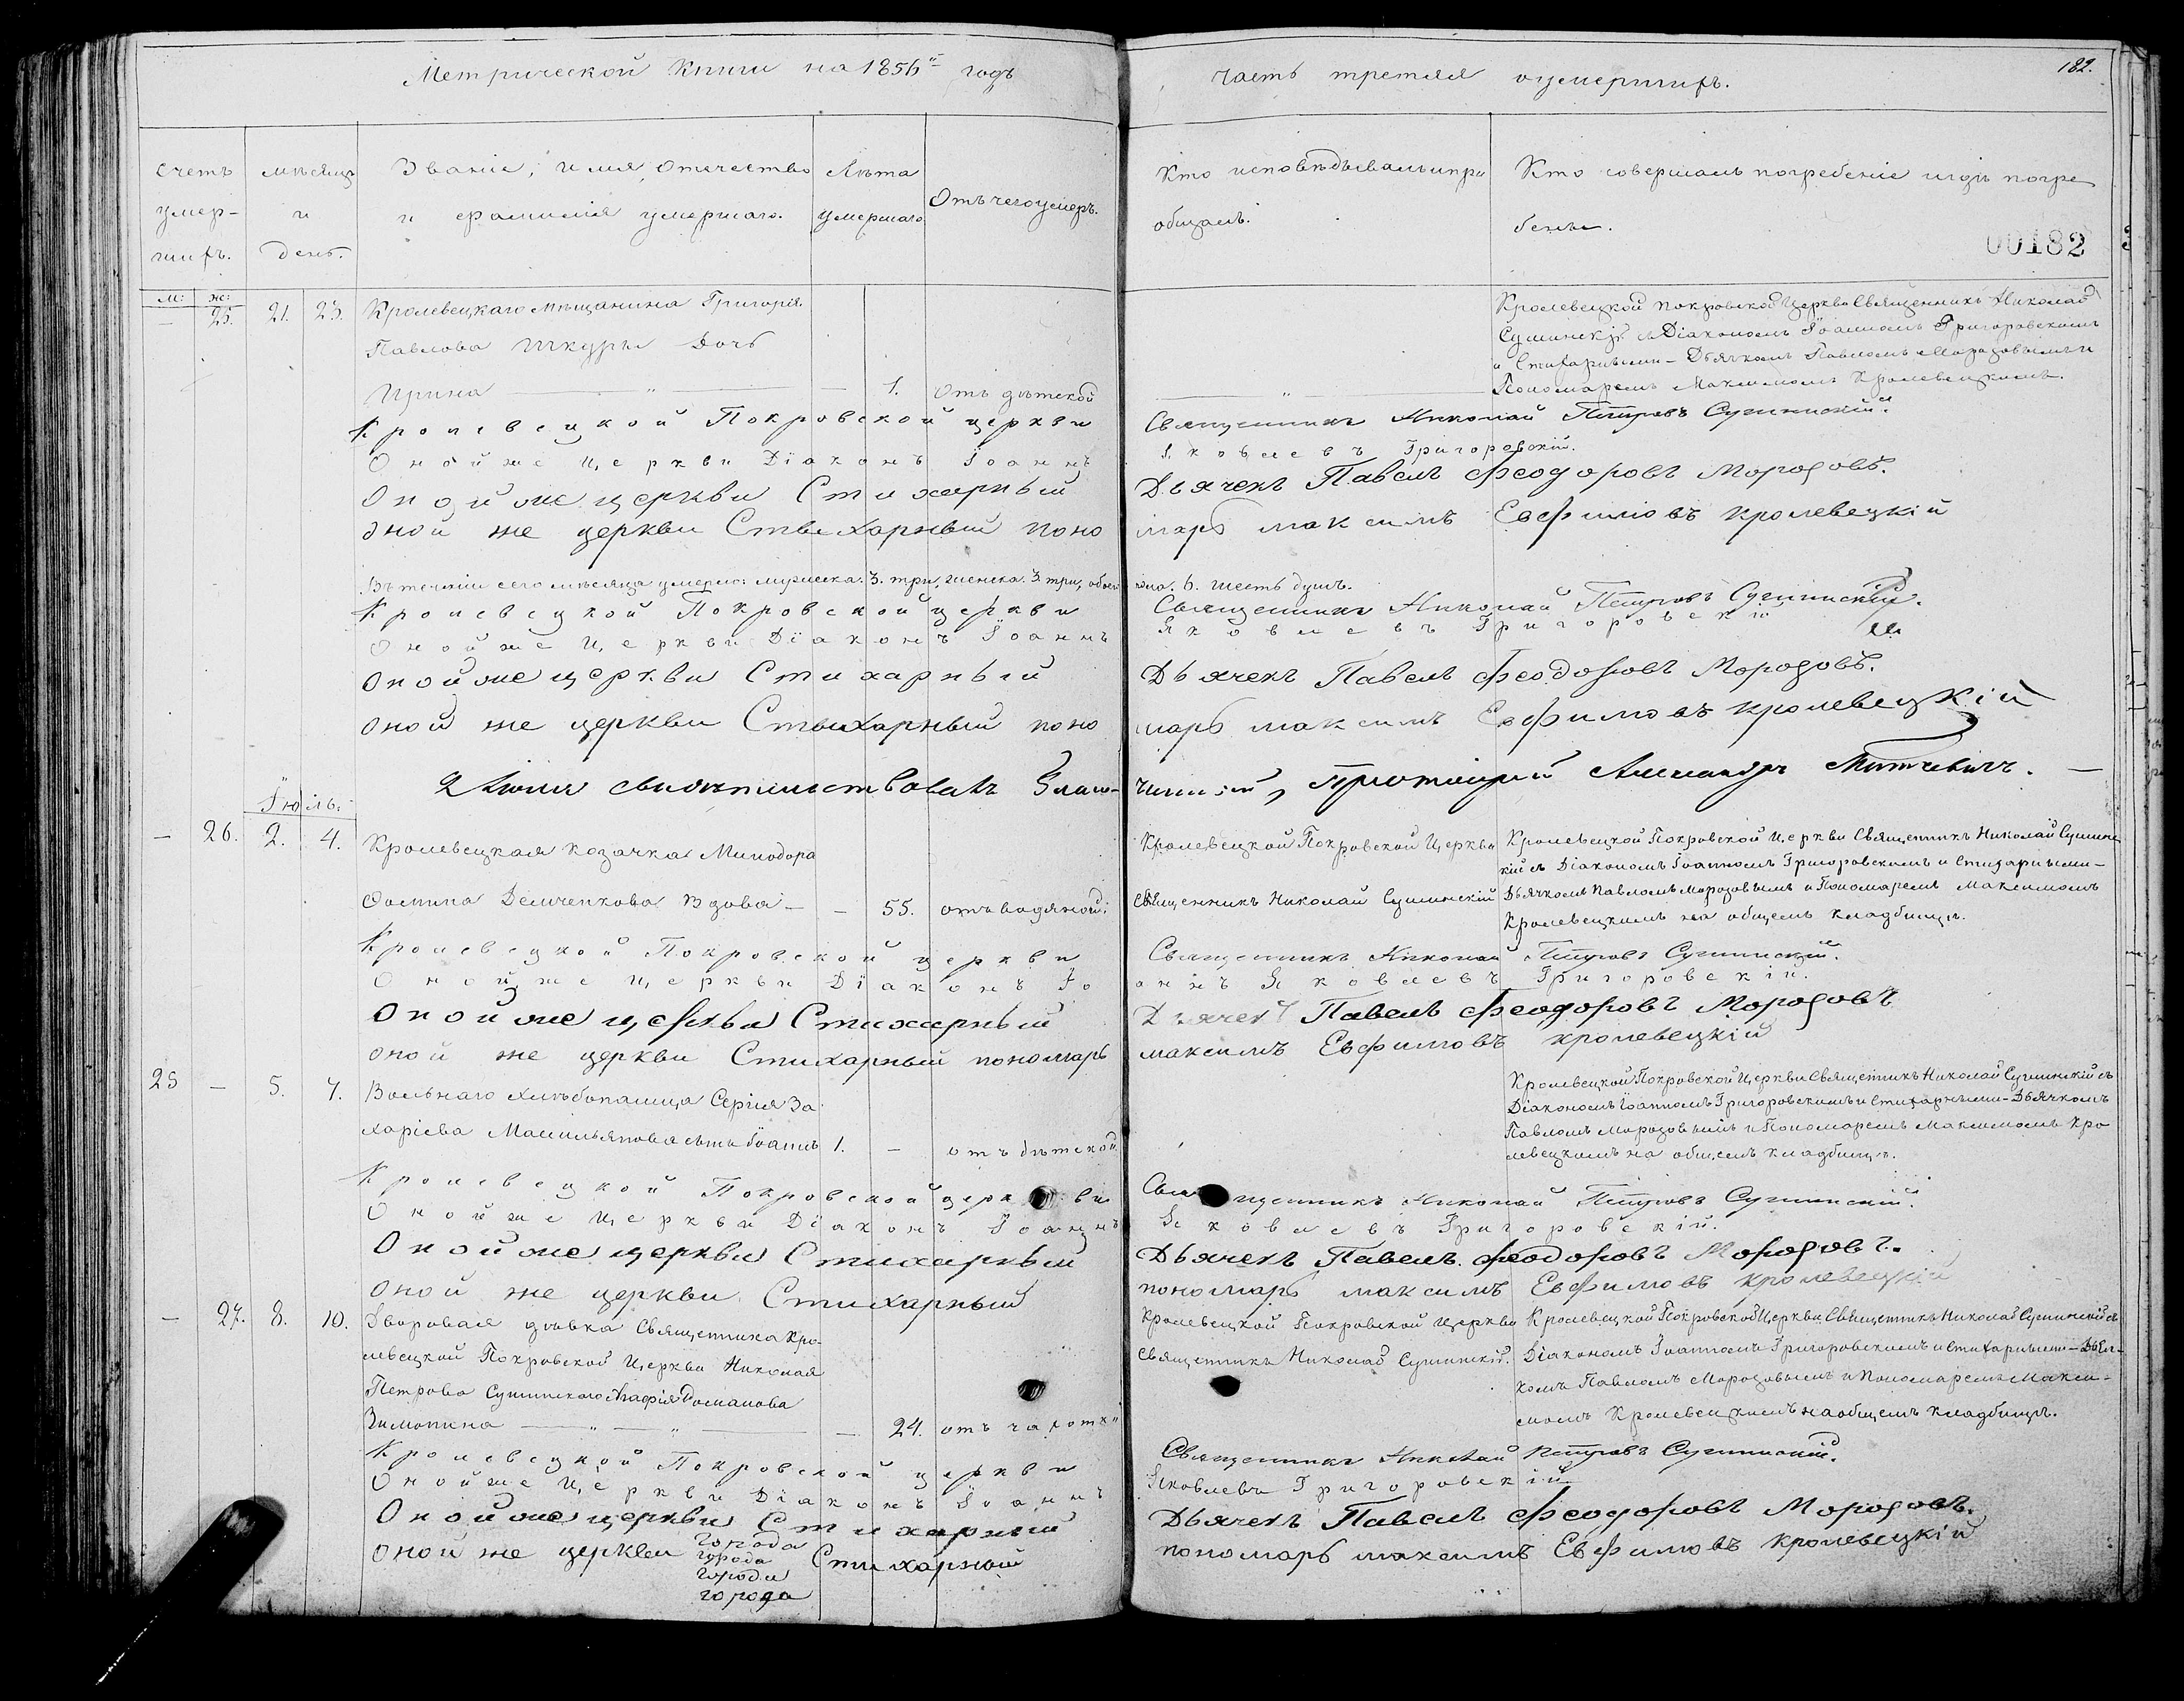 Метрической Книги на 1856й годъ часть третяя оумершихъ. 182.
счетъ умер-шихъ. мѣсяцъ и день. Званіе, имя, отечество и фамилія умершаго. Лѣта умершаго Отъ чего умеръ. Кто исповѣдывалъ и прі общалъ. Кто совершалъ погребеніе и гдѣ погре бены.
00182
м: ж:
— 25. 21. 23. Кролевецкаго мѣщанина Григорія
Павлова Шкуры Дочь
Ирина — „ — — 1. Отъ дѣтской
Кролевецкой Покровской Церкви Священникъ Николай
Сушинскій съ Діакономъ Іоанномъ Григоровскимъ
и Стихарными – Дьячкомъ Павломъ Морозовымъ и
Пономаремъ Максимомъ Кролевецкимъ.
Кролевецкой Покровской церкви Священникъ Николай Петровъ Сушинскій.
Оной же Церкви Діаконъ Іоаннъ Яковлевъ Григоровскій.
Оной же церкви Стихарный Дьячекъ Павелъ Феодоровъ Морозовъ.
оной же церкви Стыхарный поно марь максимъ Евфимовъ кролевецкій
Въ теченіи сего мѣсяца умерло: мужеска. 3. три, женска. 3. три, обоего пола. 6. шесть душъ.
Кролевецкой Покровской церкви Священникъ Николай Петровъ Сушинскій.
Оной же Церкви Діаконъ Іоаннъ Яковлевъ Григоровскій
Оной же церкви Стихарный Дьячекъ Павелъ Феодоровъ Морозовъ.
оной же церкви Стыхарный поно марь максимъ Евфимовъ кролевецкій
2 Іюля свидѣтельствовалъ Благо-чинный, Протоіерей Александръ —
Іюль.
— 26. 2. 4. Кролевецкая козачка Минодора
Фомина Демченкова Вдова — — 55. отъ водяной:
Кролевецкой Покровской Церкви
Священникъ Николай Сушинскій
Кролевецкой Покровской Церкви Священникъ Николай Сушинс
кій съ Діакономъ Іоанномъ Григоровскимъ и Стихарными –
Дьячкомъ Павломъ Морозовымъ и Пономаремъ Максимомъ
Кролевецкимъ на общемъ кладбищѣ.
Кролевецкой Покровской церкви Священникъ Николай Петровъ Сушинскій.
Оной же Церкви Діаконъ Іо аннъ Яковлевъ Григоровскій.
Оной же церкви Стихарный Дьячекъ Павелъ Феодоровъ Морозовъ
оной же церкви Стихарный пономарь максимъ Евфимовъ кролевецкій
25 — 5. 7. Вольнаго хлѣбопашца Сергія За
харіева сынъ Іоаннъ 1. — отъ дѣтской
Кролевецкой Покровской Церкви Священникъ Николай Сушинскій съ
Діакономъ Іоанномъ Григоровскимъ и Стихарными – Дьячкомъ
Павломъ Морозовымъ и Пономаремъ Максимомъ Кро
левецкимъ на общемъ кладбищѣ.
Кролевецкой Покровской церкви Священникъ Николай Петровъ Сушинскій.
Оной же Церкви Діаконъ Іоаннъ Яковлевъ Григоровскій.
Оной же церкви Стихарный Дьячекъ Павелъ Феодоровъ Морозовъ.
оной же церкви Стихарный пономарь максимъ Евфимовъ кролевецкій
— 27. 8. 10. Дворовая дѣвка Священника Кро-
левецкой Покровской Церкви Николая
Петрова Сушинскаго Агафія Романова
Зимокина — „ — „ — — 24. отъ чахотки
Кролевецкой Покровской Церкви
Священникъ Николай Сушинскій.
Кролевецкой Покровской Церкви Священникъ Николай Сушинскій съ
Діакономъ Іоанномъ Григоровскимъ и Стихарными – Дьяч-
комъ Павломъ Морозовымъ и Пономаремъ Макси-
момъ Кролевецкимъ на общемъ кладбищѣ.
Кролевецкой Покровской церкви Священникъ Николай Петровъ Сушинскій.
Оной же Церкви Діаконъ Іоаннъ Яковлевъ Григоровскій
Оной же церкви Стихарный Дьячекъ Павелъ Феодоровъ Морозовъ.
оной же церкви Стихарной пономарь максимъ Евфимовъ кролевецкій
города
города
города
города